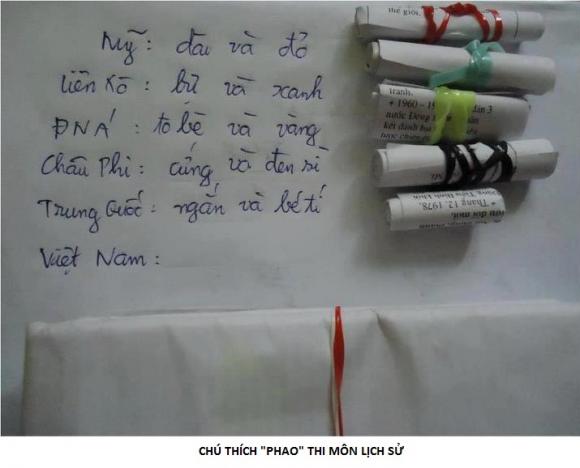 Mỹ : dài và đỏ
Liên Xô : bự và xanh
ĐNÁ : to bè và vàng
Châu Phi : cứng và đen sì
Trung Quốc : ngắn và bé tí
Việt Nam :
thế giới.
tranh.
+ 1960 – dân 3
nước Đông
kết đánh
* Tháng 12.1978,
CHÚ THÍCH "PHAO" THI MÔN LỊCH SỬ